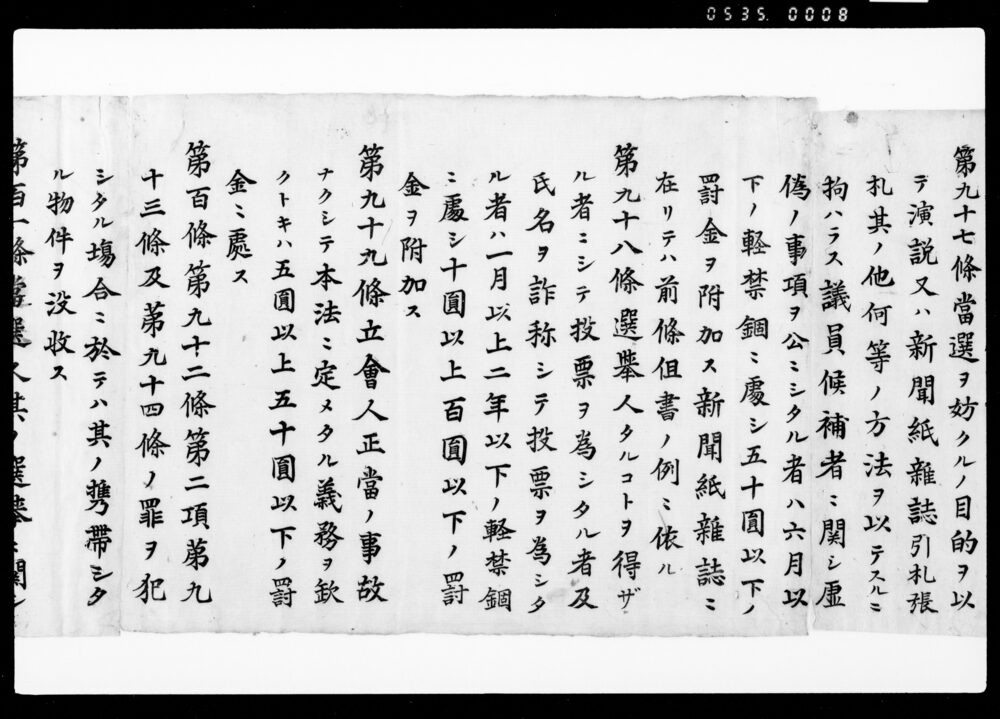 0535. 0008
第九十七條當選ヲ妨クルノ目的ヲ以
テ演説又ハ新聞紙雜誌引札張
札其ノ他何等ノ方法ヲ以テスルニ
拘ハラス議員候補者ニ関シ虚
偽ノ事項ヲ公ニシタル者ハ六月以
下ノ軽禁錮ニ處シ五十圓以下ノ
罸金ヲ附加ス新聞紙雜誌ニ
在リテハ前條但書ノ例ニ依ル
第九十八條選擧人タルコトヲ得ザ
ル者ニシテ投票ヲ為シタル者及
氏名ヲ詐称シテ投票ヲ為シタ
ル者ハ一月以上二年以下ノ軽禁錮
ニ處シ十圓以上百圓以下ノ罸
金ヲ附加ス
第九十九條立會人正當ノ事故
ナクシテ本法ニ定メタル義務ヲ欠
クトキハ五圓以上五十圓以下ノ罸
金ニ處ス
第百條第九十二條第二項第九
十三條及第九十四條ノ罪ヲ犯
シタル塲合ニ於テハ其ノ携帶シタ
ル物件ヲ没收ス
第百一條當選人其ノ選擧ニ関シ